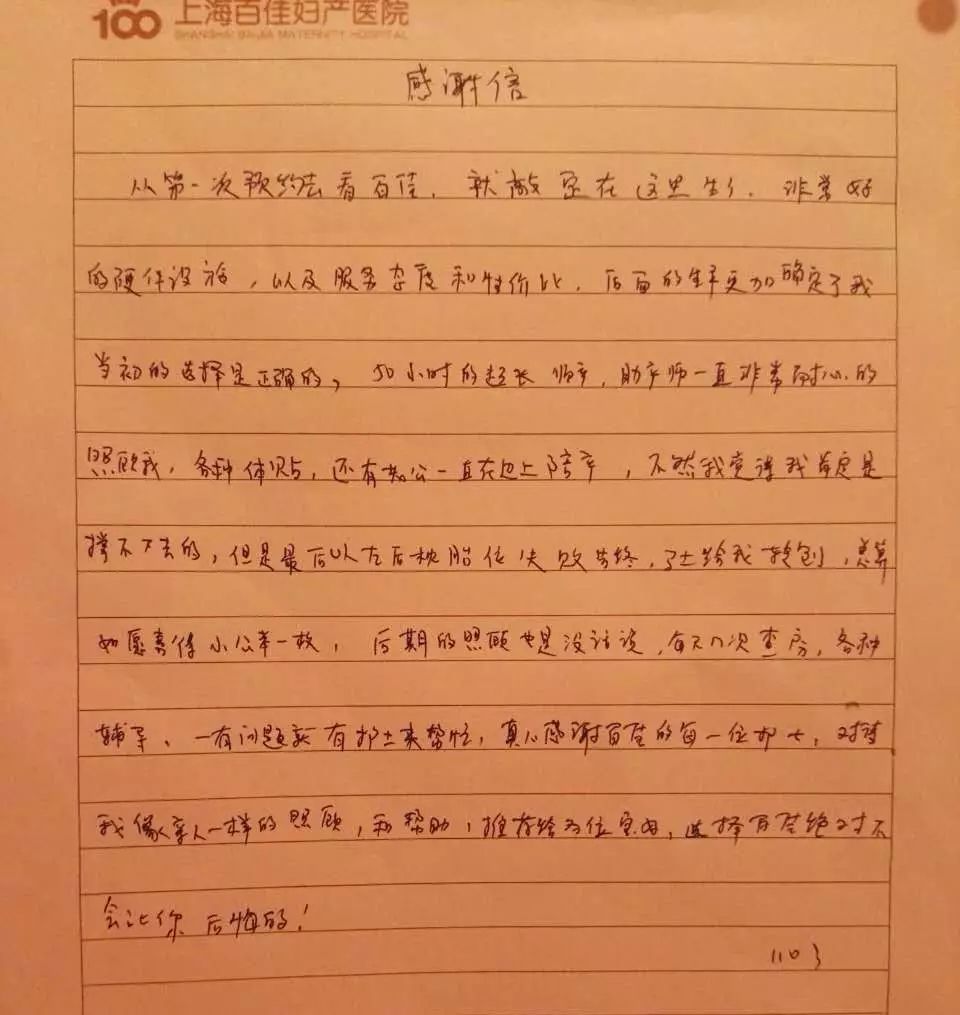 100 上海百佳妇产医院
SHANGHAI BAIJIA MATERNITY HOSPITAL
感谢信
从第一次预约去看百佳,就敲定在这里生了.非常好
的硬件设施,以及服务态度和性价比,后面的生产更加确定了我
当初的选择是正确的,50小时的超长顺产,助产师一直非常耐心的
照顾我,各种体贴,还有老公一直在边上陪产,不然我觉得我肯定是
撑不下去的,但是最后以左后枕胎位失败告终,给我转剖,总算
如愿喜得小公举一枚,后期的照顾也是没话说,每天几次查房,各种
辅导、一有问题就有护士来帮忙,真心感谢百佳的每一位护士,对待
我像亲人一样的照顾,和帮助,推荐给各位宝妈,选择百佳绝对不
会让你后悔的!
1103